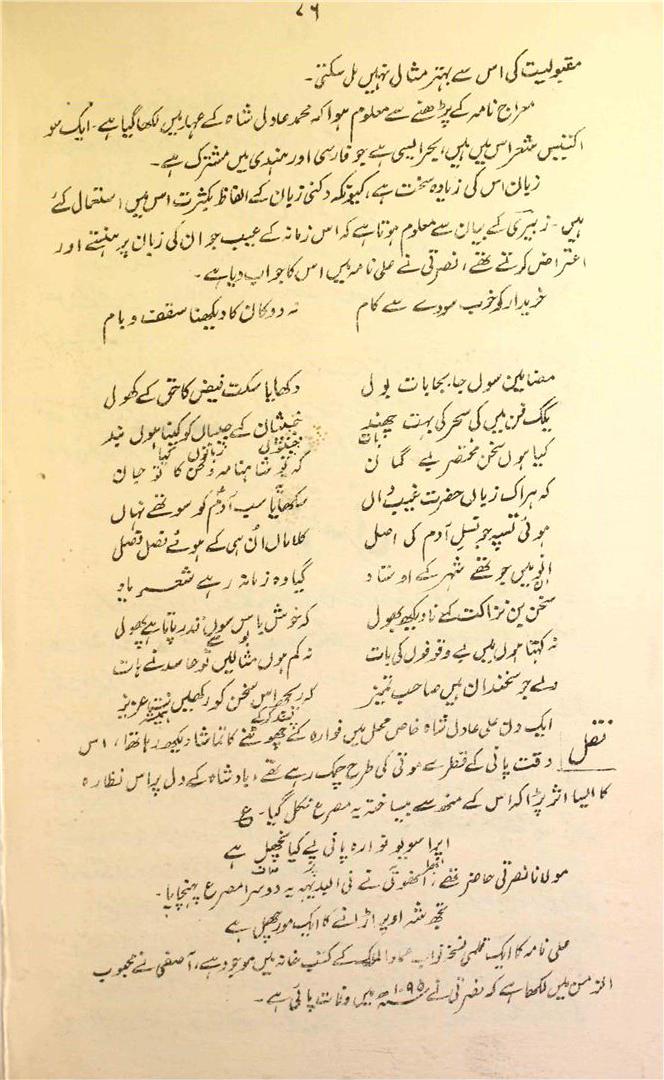 ۷۶
مقبولیت کی اس سے بہتر مثال نہیں مل سکتی۔
معراج نامہ کے پڑھنے سے معلوم ہوا کہ محمد عادل شاہ کے عہد میں لکھا گیا ہے۔ ایک سو
اکتیس شعر اس میں ہیں، بحر ایسی ہے جو فارسی اور ہندی میں مشترک ہے۔
زبان اس کی زیادہ سخت ہے، کیونکہ دکنی زبان کے الفاظ بکثرت اس میں استعمال کئے
ہیں۔ زبیری کے بیان سے معلوم ہوتا ہے کہ اس زمانہ کے عیب جو ان کی زبان پر ہنستے اور
اعتراض کرتے تھے، نصرتی نے علی نامہ میں اس کا جواب دیا ہے۔
خریدار کو خوب سودے سے کام نہ دوکان کا دیکھنا سقف و بام
مضامین سوں جا بجا بات بولی دکھایا سکت فیض کا حق کے کھولی
یک فن میں کی سحر کی بہت چھند
کیا ہوں سخن مختصر بے گمان کہ یو شاہنامہ دکھن کا تو جان
کہ ہر اک زباں حضرت غیب داں سکھایا سب آدم کو سو تھے نہاں
ہوئی تسپہ جو نسل آدم کی اصل کلاماں ان ہی کے ہوئے فصل فصل
انو میں جو تھے شہر کے اوستاد گیا وہ زمانہ رہے شعر یاد
سخن بن نزاکت کے نا دیکھ کھول کہ خوش باس سوں قدر پاتا ہے پھول
نہ کہتا ہوں میں بے وقوفوں کی بات نہ کم ہوں مثالیں تو حاسد نے بات
ولے جو سخنداں ہیں صاحب تمیز کہ ریجھ اس سخن کو رکھیں نت عزیز
پسند کرکے ہمیشہ
نقل ایک دن علی عادل شاہ خاص محل میں فوارہ کے چھوٹنے کا تماشا دیکھ رہا تھا، اس
وقت پانی کے قطرے موتی کی طرح چمک رہے تھے، بادشاہ کے دل پر اس نظارہ
کا ایسا اثر پڑا کہ اس کے منھ سے بیساختہ یہ مصرع نکل گیا۔ ع
اپرا سو یو فوارہ پانی پے کیا نچھل ہے
صاف
مولانا نصرتی حاضر تھے، انھوں نے فی البدیہہ یہ دوسرا مصرع پہنچایا۔
تجھ شہ اوپر اڑانے کا ایک مورچھل ہے
علی نامہ کا ایک قلمی نسخہ نواب عماد الملک کے کتب خانہ میں موجود ہے، آصفی نے محبوب
الزمن میں لکھا ہے کہ نصرتی نے ۱۰۹۵ھ میں وفات پائی ہے۔